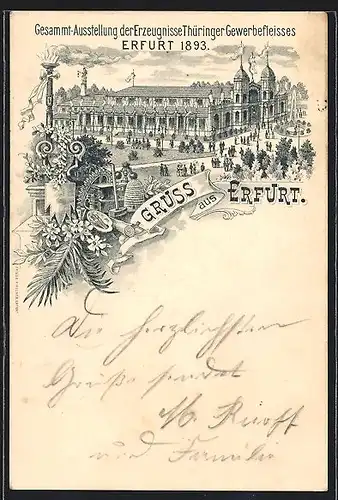 Gesammt-Ausstellung der Erzeugnisse Thüringer Gewerbefleisses
ERFURT 1893.
GRUSS aus ERFURT.
Die herzlichsten
Grüße sendet
M. Ruoff
und Familie